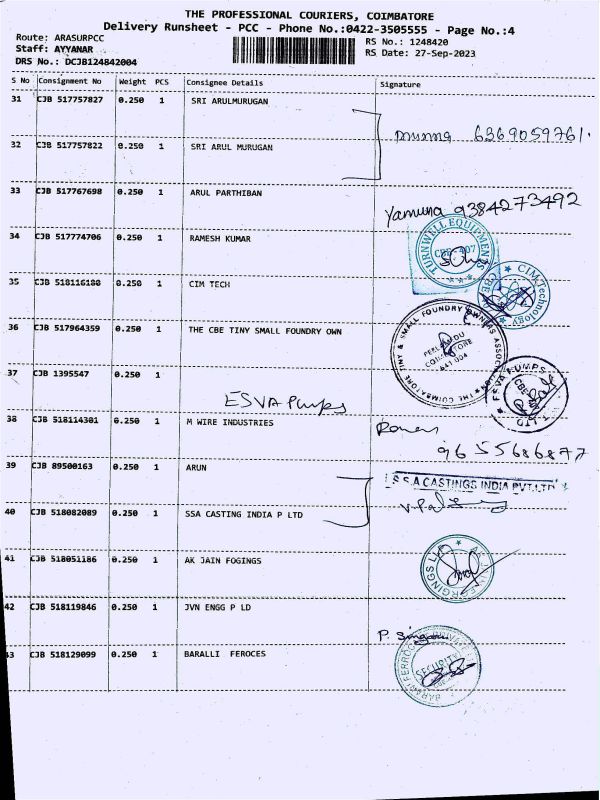 THE PROFESSIONAL COURIERS, COIMBATORE
Delivery Runsheet - PCC - Phone No.:0422-3505555 - Page No.:4
Route: ARASURPCC
RS No.: 1248420
Staff: AYYANAR
RS Date: 27-Sep-2023
DRS No.: DCJB124842004
S No Consignment No Weight PCS Consignee Details Signature
31 CJB 517757827 0.250 1 SRI ARULMURUGAN
munna 6369059761.
32 CJB 517757822 0.250 1 SRI ARUL MURUGAN
33 CJB 517767698 0.250 1 ARUL PARTHIBAN
Yamuna 9384273492
34 CJB 517774706 0.250 1 RAMESH KUMAR
TURNWELL EQUIPMENTS
35 CJB 518116180 0.250 1 CIM TECH
CIM Technology
CBE
36 CJB 517964359 0.250 1 THE CBE TINY SMALL FOUNDRY OWN
THE COIMBATORE TINY & SMALL FOUNDRY OWNERS ASSOCIATION
COIMBATORE
641 004
37 CJB 1395547 0.250 1
ESVA Pumps
38 CJB 518114301 0.250 1 M WIRE INDUSTRIES
9655686877
39 CJB 89500163 0.250 1 ARUN
S S A CASTINGS INDIA PVT.LTD
40 CJB 518082089 0.250 1 SSA CASTING INDIA P LTD
41 CJB 518051186 0.250 1 AK JAIN FOGINGS
42 CJB 518119846 0.250 1 JVN ENGG P LD
43 CJB 518129099 0.250 1 BARALLI FEROCES
SECURITY